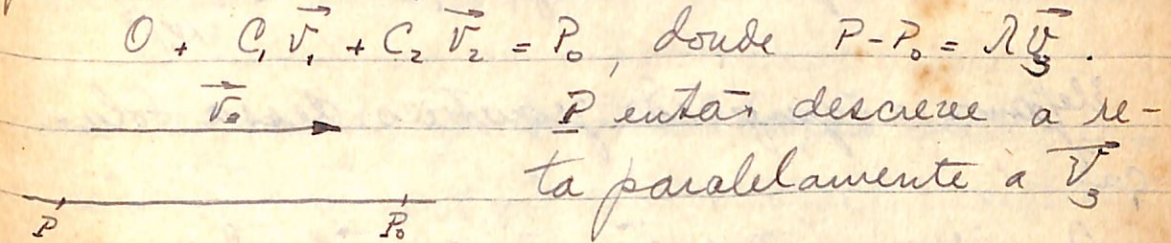 O + C₁v⃗₁ + C₂v⃗₂ = P₀, donde P-P₀ = λv⃗₃.
v⃗₀
P então descreve a re-
ta paralelamente a v⃗₃
P P₀